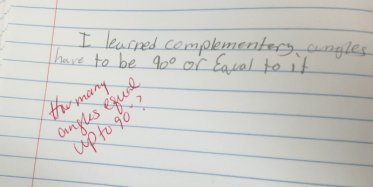 I learned complementery angles
have to be 90° or Equal to it
How many
angles equal
up to 90°?